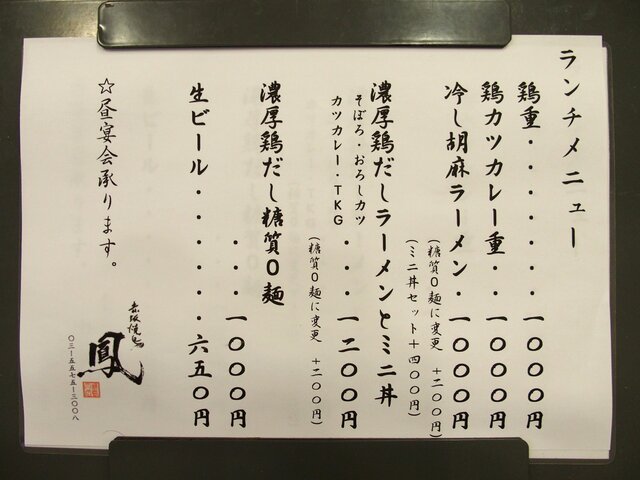 ランチメニュー
鶏重・・・・・・・一〇〇〇円
鶏カツカレー重・・一〇〇〇円
冷し胡麻ラーメン・一〇〇〇円
(糖質0麺に変更 +二〇〇円)
(ミニ丼セット+四〇〇円)
濃厚鶏だしラーメンとミニ丼
そぼろ・おろしカツ
カツカレー・TKG・・・一二〇〇円
(糖質0麺に変更 +二〇〇円)
濃厚鶏だし糖質0麺
・・・一〇〇〇円
生ビール・・・・・・六五〇円
☆昼宴会承ります。
赤坂焼鳥
鳳
〇三-五五七五-三〇〇八